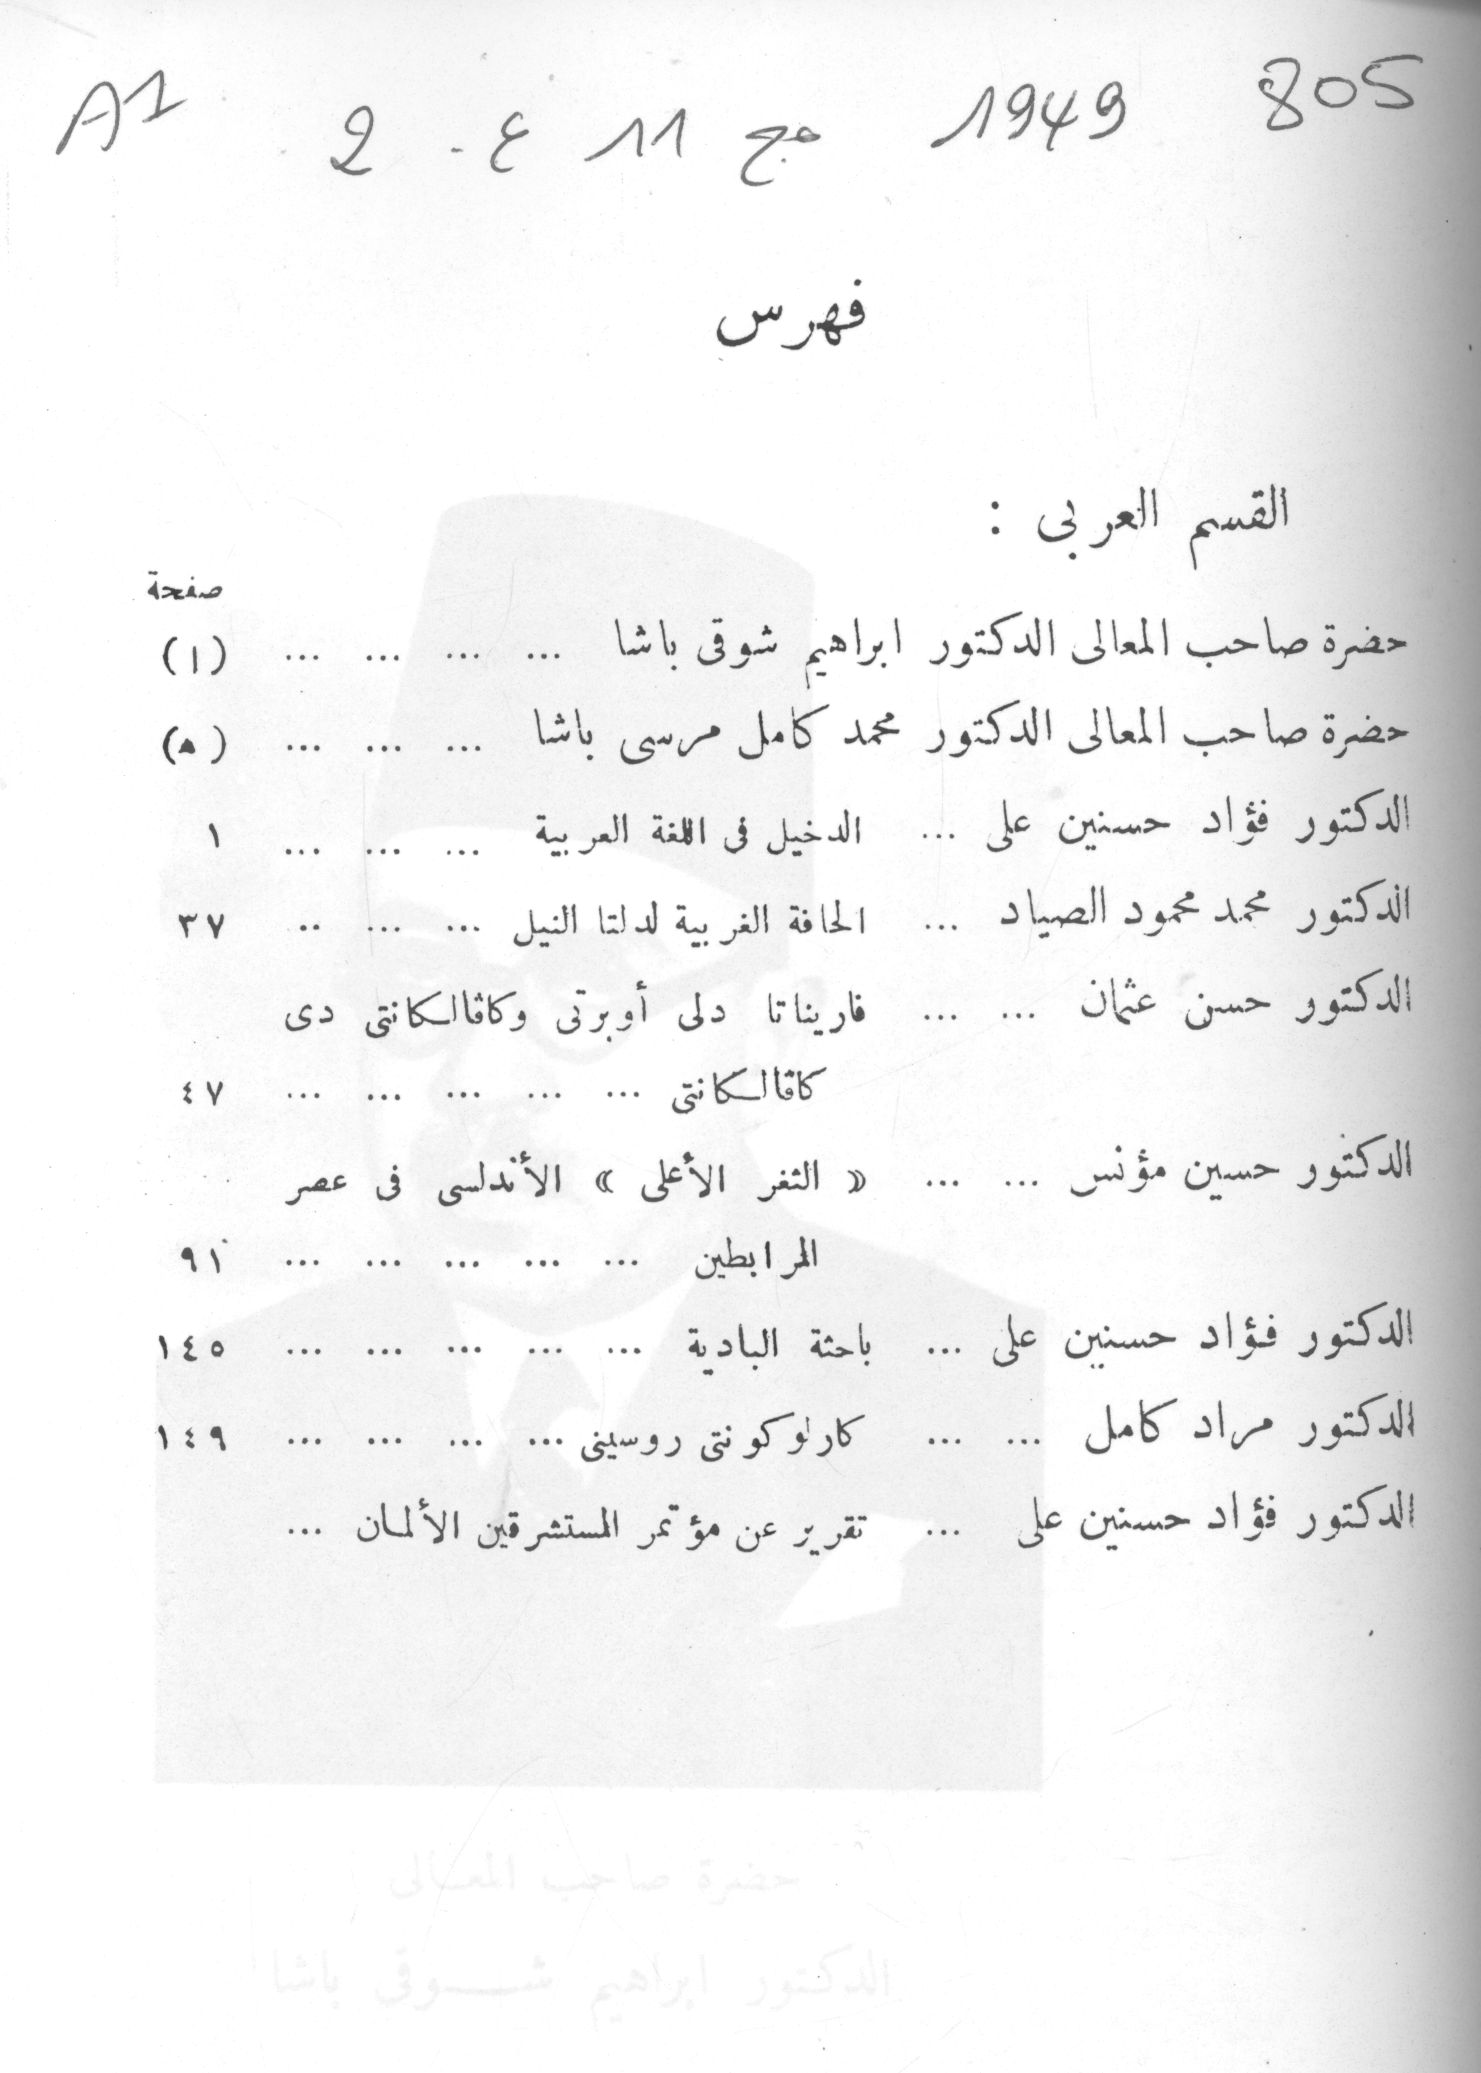 805 1949 مج 11 ع. 2 A1
فهرس
القسم العربى :
صفحة
حضرة صاحب المعالى الدكتور ابراهيم شوقى باشا ... ... ... ... (ا)
حضرة صاحب المعالى الدكتور محمد كامل مرسى باشا ... ... ... (ه)
الدكتور فؤاد حسنين على ... الدخيل فى اللغة العربية ... ... ... ١
الدكتور محمد محمود الصياد ... الحافة الغربية لدلتا النيل ... ... .. ٣٧
الدكتور حسن عثمان ... ... فاريناتا دلى أوبرتى وكاڤالكانتى دى
كاڤالكانتى ... ... ... ... ... ٤٧
الدكتور حسين مؤنس ... ... « الثغر الأعلى » الأندلسى فى عصر
المرابطين ... ... ... ... ... ٩١
الدكتور فؤاد حسنين على ... باحثة البادية ... ... ... ... ... ١٤٥
الدكتور مراد كامل ... ... كارلو كونتى روسينى ... ... ... ... ١٤٩
الدكتور فؤاد حسنين على ... تقرير عن مؤتمر المستشرقين الألمان ...
حضرة صاحب المعالى
الدكتور ابراهيم شوقى باشا